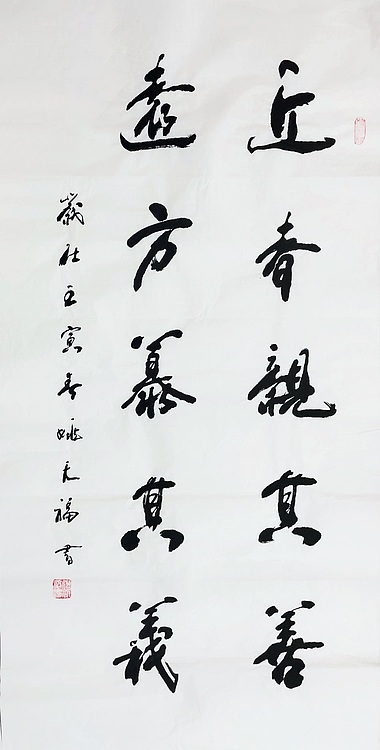 近者親其善
遠方慕其義
歲在壬寅春姚元福書